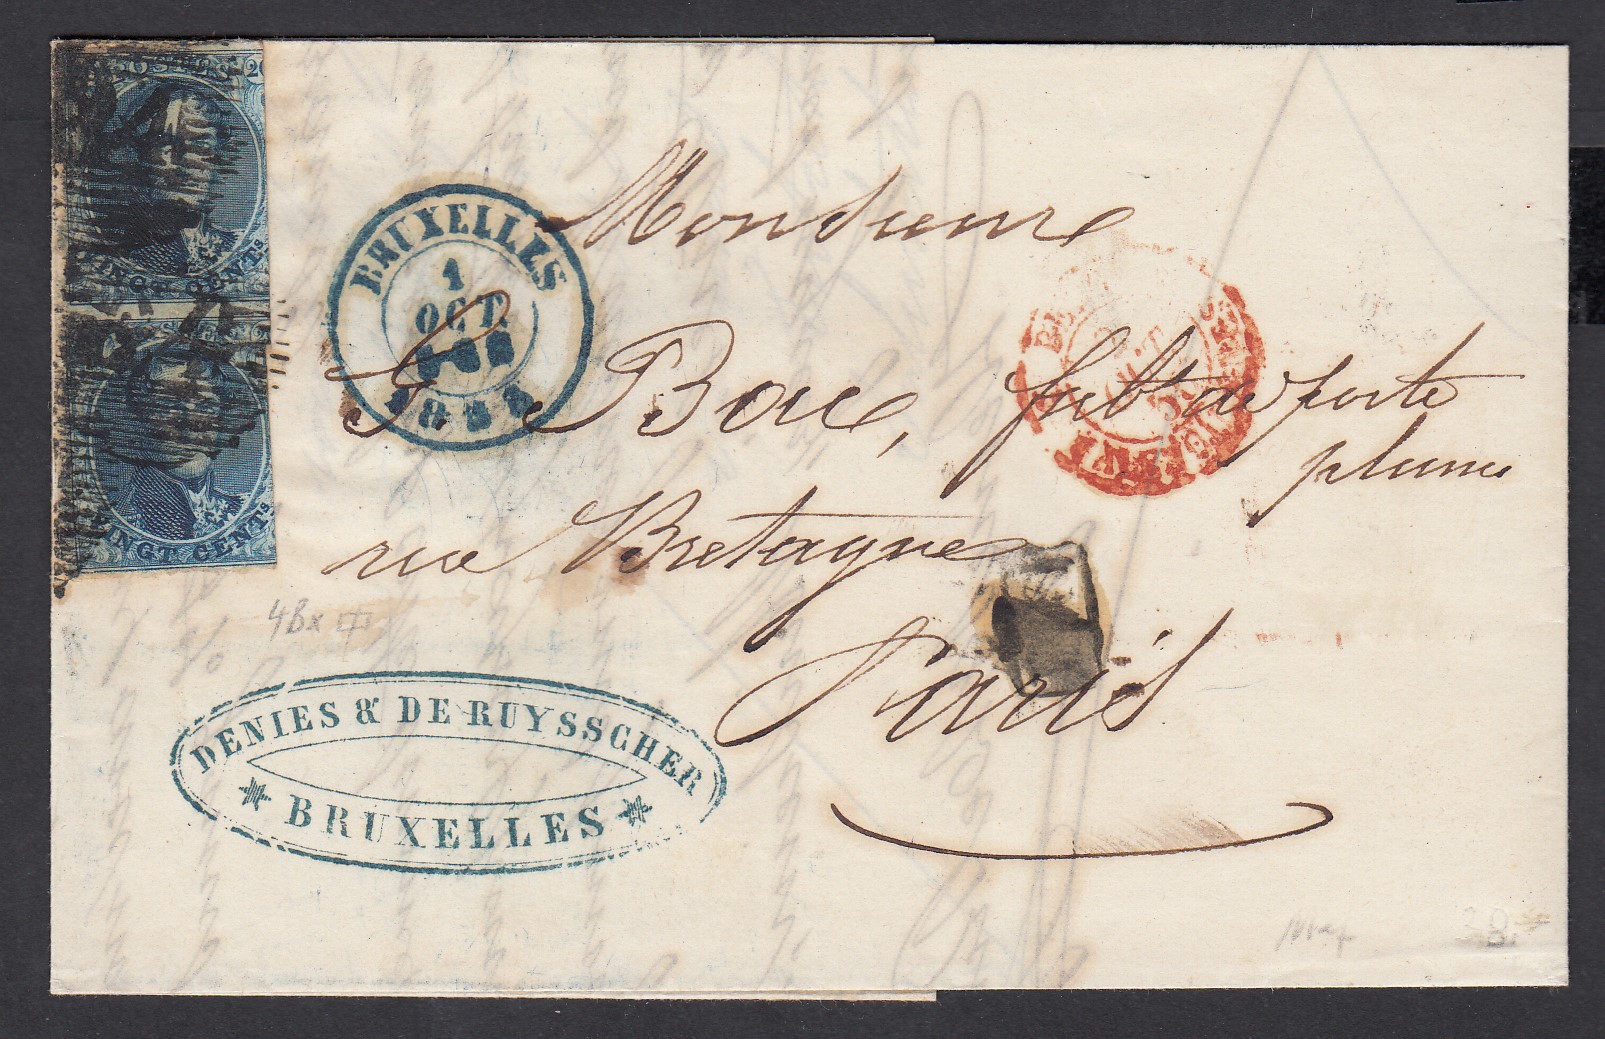 POSTES 20
VINGT CENTS
VINGT CENTS
BRUXELLES
1
OCT.
18
Monsieur
G. Bac, fabt de porte
plume
rue Bretagne
Paris
DENIES & DE RUYSSCHER
BRUXELLES